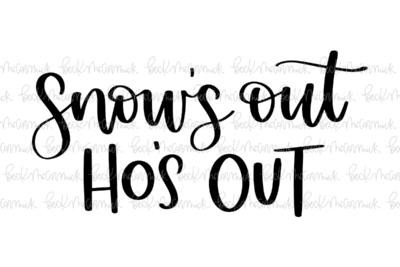 Snow's out
HO'S OUT